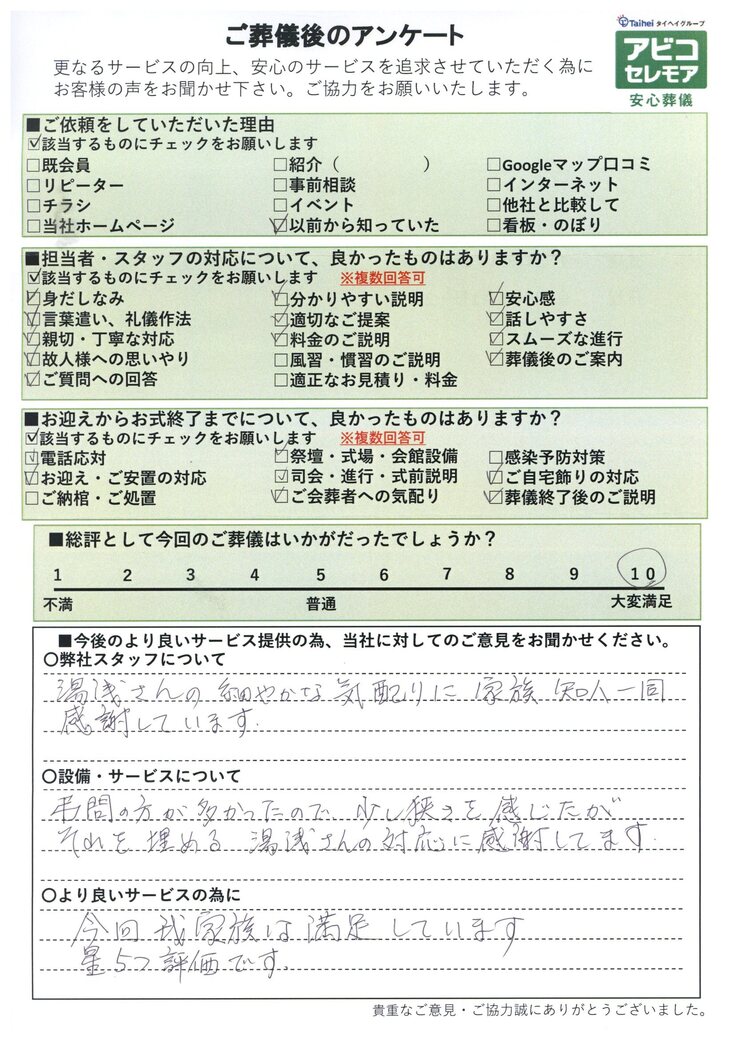 ご葬儀後のアンケート
Taihei タイヘイグループ
アビコ
セレモア
安心葬儀
更なるサービスの向上、安心のサービスを追求させていただく為に
お客様の声をお聞かせ下さい。ご協力をお願いいたします。
■ご依頼をしていただいた理由
☑該当するものにチェックをお願いします
□既会員 □紹介（ ） □Googleマップ口コミ
□リピーター □事前相談 □インターネット
□チラシ □イベント □他社と比較して
□当社ホームページ ☑以前から知っていた □看板・のぼり
■担当者・スタッフの対応について、良かったものはありますか？
☑該当するものにチェックをお願いします ※複数回答可
☑身だしなみ ☑分かりやすい説明 ☑安心感
☑言葉遣い、礼儀作法 ☑適切なご提案 ☑話しやすさ
☑親切・丁寧な対応 ☑料金のご説明 ☑スムーズな進行
☑故人様への思いやり □風習・慣習のご説明 ☑葬儀後のご案内
☑ご質問への回答 □適正なお見積り・料金
■お迎えからお式終了までについて、良かったものはありますか？
☑該当するものにチェックをお願いします ※複数回答可
☑電話応対 ☑祭壇・式場・会館設備 □感染予防対策
☑お迎え・ご安置の対応 ☑司会・進行・式前説明 ☑ご自宅飾りの対応
□ご納棺・ご処置 ☑ご会葬者への気配り ☑葬儀終了後のご説明
■総評として今回のご葬儀はいかがだったでしょうか？
1 2 3 4 5 6 7 8 9 10
不満 普通 大変満足
■今後のより良いサービス提供の為、当社に対してのご意見をお聞かせください。
〇弊社スタッフについて
湯浅さんの細やかな気配りに家族知人一同
感謝しています.
〇設備・サービスについて
弔問の方が多かったので、少し狭さを感じたが
それを埋める湯浅さんの対応に感謝してます.
〇より良いサービスの為に
今回我家族は満足しています
星5つ評価です.
貴重なご意見・ご協力誠にありがとうございました。